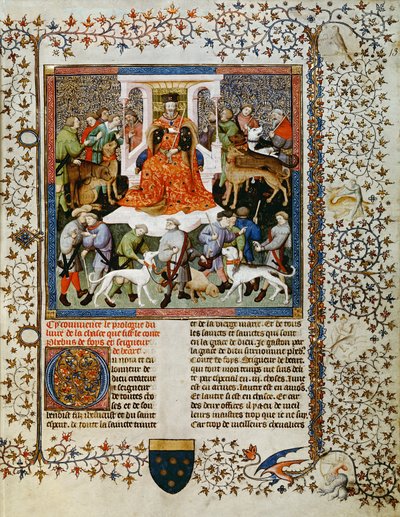 Cy commence le prologue du
livre de la chasse que fist le conte
Phebus de foys et seigneur
de bearn
nom et a
lonneur de
dieu createur
et seigneur
de toutes cho
ses et de son
benoist filz Jhesucrist et du saint
esprit de toute la saincte trinite
et de la vierge marie. Et de tous
les sains et saintes qui sont
en la grace de dieu. Je gaston par la
grace de dieu surnomme pheb
Conte de foys. Seigneur de bearn
qui tout mon temps me suis deli
te par especial en .iij. choses. Lune
est en armes. lautre est en amours
Et lautre si est en chasce. Et car
des deux offices il y a eu de meil
leurs maistres trop que je ne suy
Car trop de meilleurs chevaliers